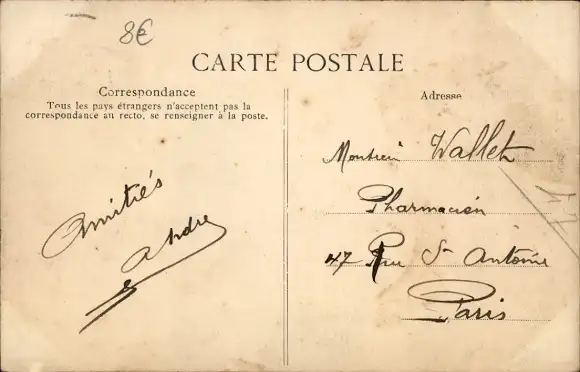 8€
CARTE POSTALE
Correspondance
Tous les pays étrangers n'acceptent pas la
correspondance au recto, se renseigner à la poste.
Amitiés
André
Adresse
Monsieur Wallet
Pharmacien
47 Rue St Antoine
Paris